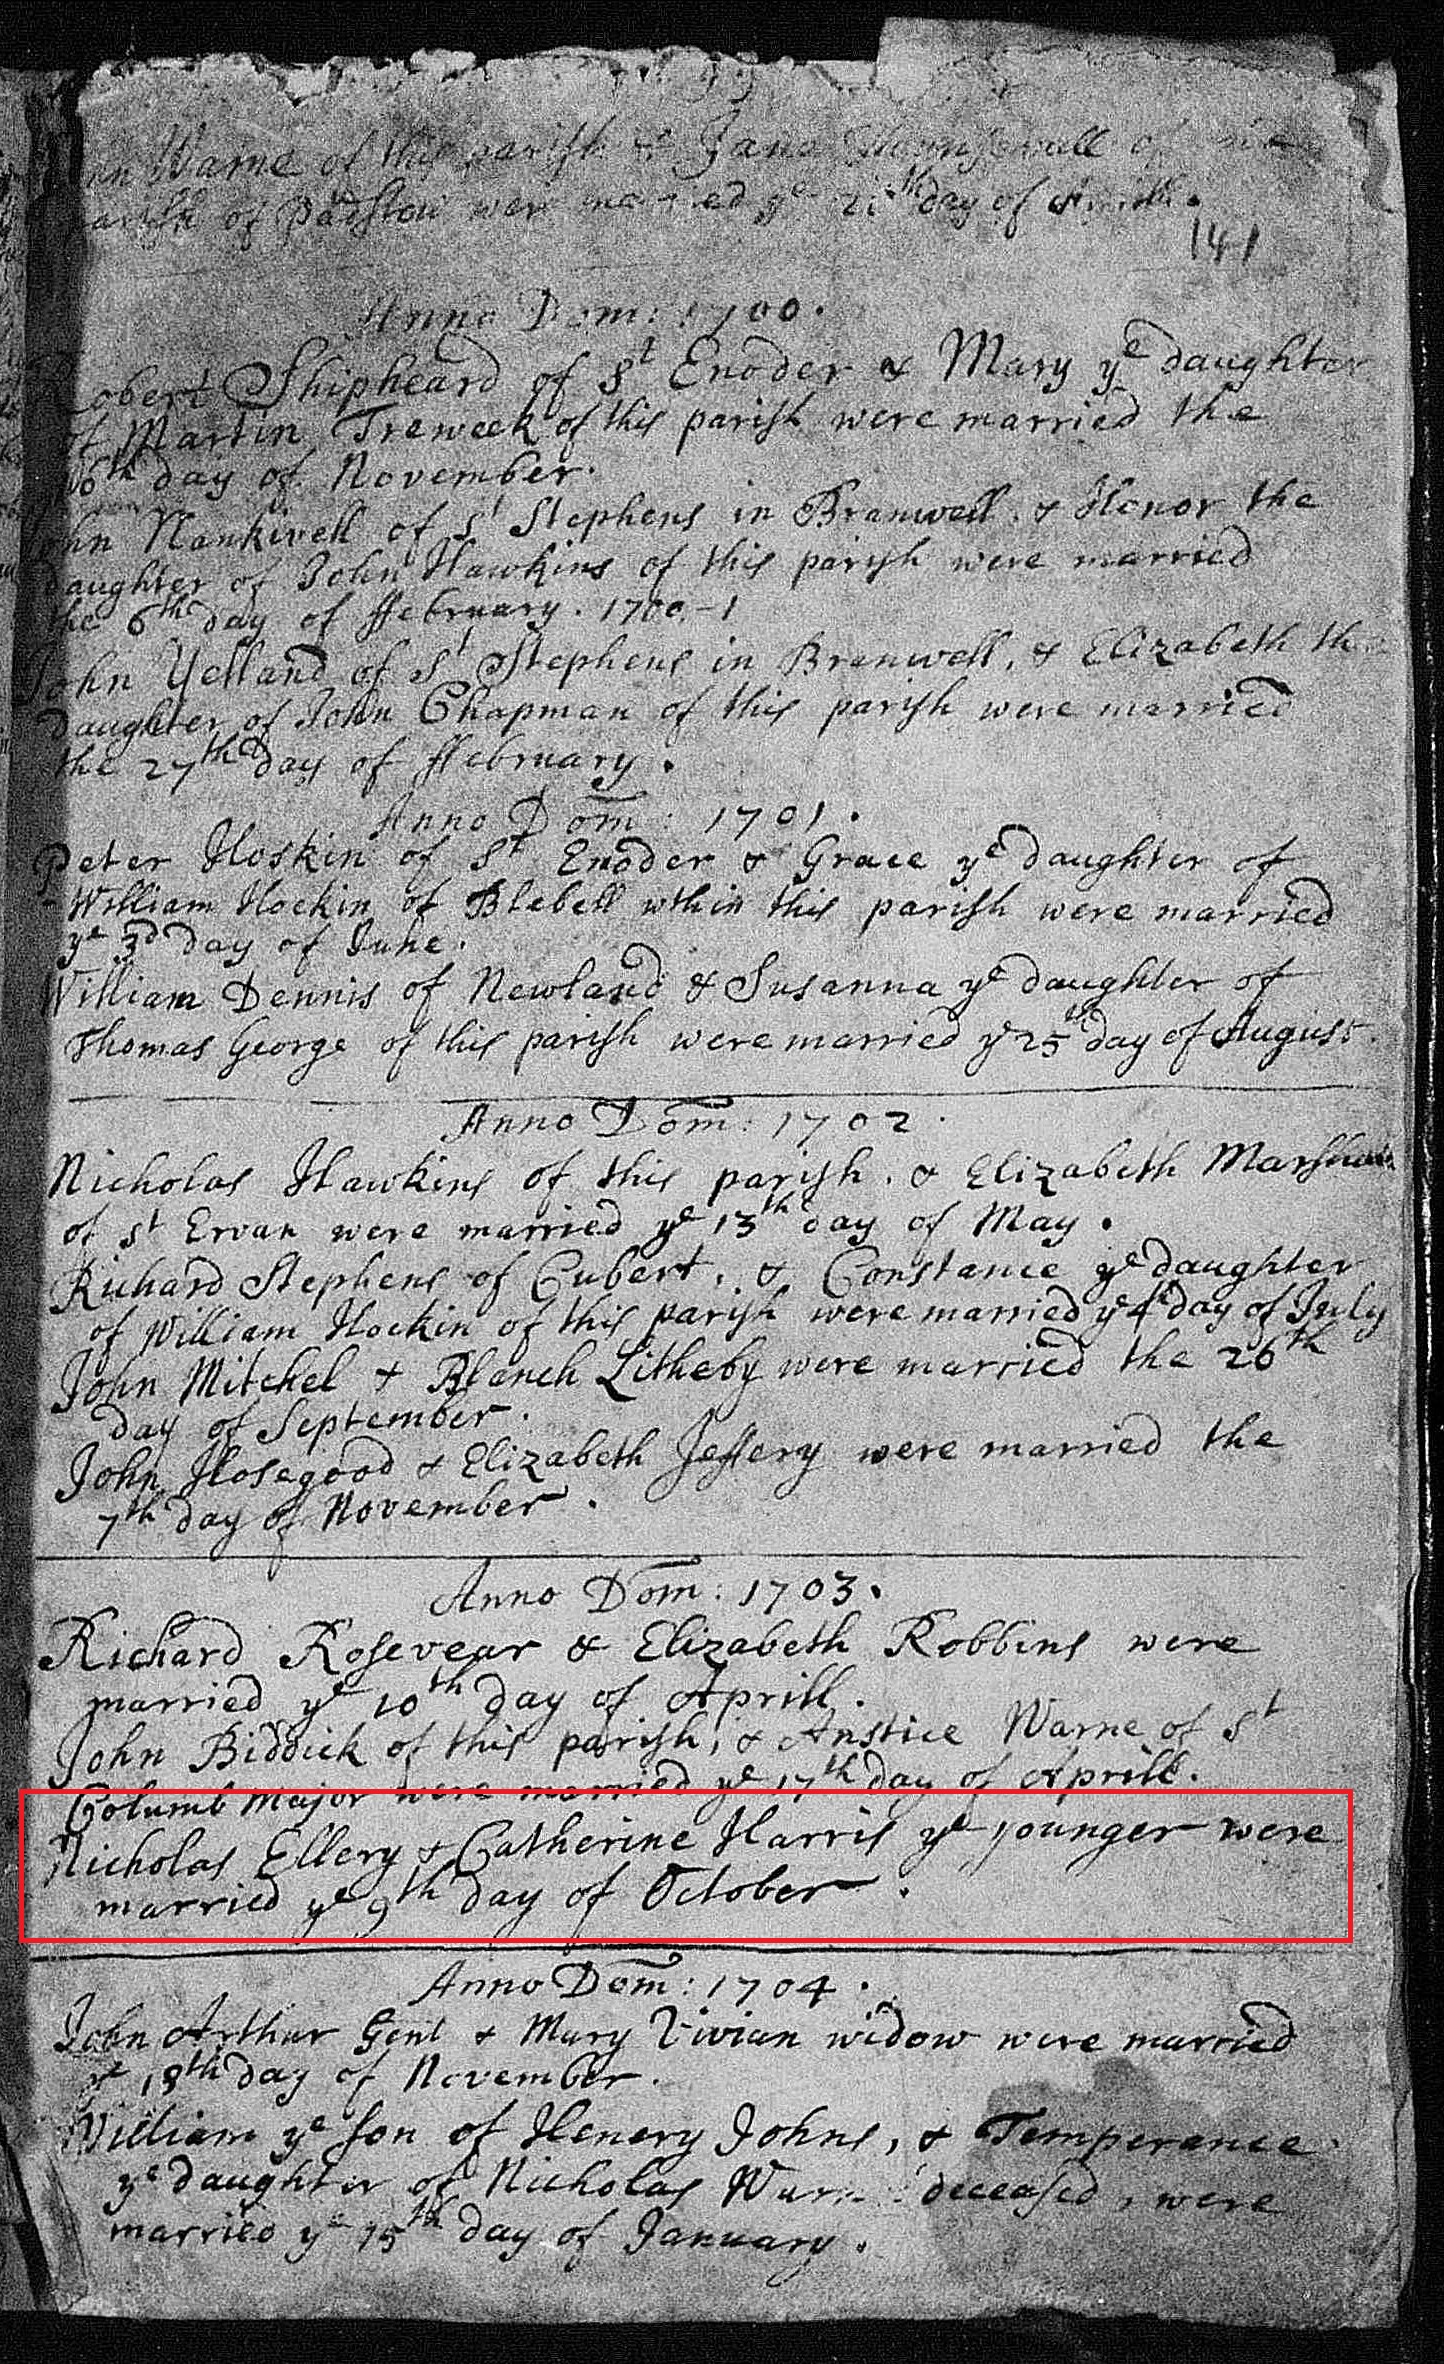 Warne of this parish & Jane of
parish of Padstow were married ye day of
141
Anno Dom: 1700.
Robert Shipheard of St Enoder & Mary ye daughter
of Martin Treweek of this parish were married the
day of November.
John Nankivell of St Stephens in Branwell. & Honor the
daughter of John Hawkins of this parish were married
the 6th day of ffebruary. 1700-1
John Yelland of St Stephens in Branwell, & Elizabeth the
daughter of John Chapman of this parish were married
the 27th day of ffebruary.
Anno Dom: 1701.
Peter Hoskin of St Enoder & Grace ye daughter of
William Hockin of Blebell wthin this parish were married
ye 3d day of June.
William Dennis of Newland & Susanna ye daughter of
Thomas George of this parish were married ye 25th day of August.
Anno Dom: 1702.
Nicholas Hawkins of this parish. & Elizabeth
of St Ervan were married ye 13th day of May.
Richard Stephens of Cubert. & Constance ye daughter
of William Hockin of this parish were married ye 4th day of July
John Mitchel & Blanch Litheby were married the 26th
day of September.
John Hosegood & Elizabeth Jeffery were married the
7th day of November.
Anno Dom: 1703.
Richard Rosevear & Elizabeth Robbins were
married ye 10th day of Aprill.
John Biddick of this parish, & Anstice Warne of St
Columb Major were married ye 17th day of Aprill.
Nicholas Ellery & Catherine Harris ye younger were
married ye 9th day of October.
Anno Dom: 1704.
John Arthur Gent & Mary Vivian widow were married
ye 18th day of November.
William ye son of Henery Johns, & Temperance
ye daughter of Nicholas deceased, were
married ye 15th day of January.